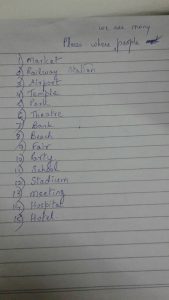 we see many
Places where people
1) Market
2) Railway Station
3) Airport
4) Temple
5) Park
6) Theatre
7) Bank
8) Beach
9) Fair
10) Party
11) School
12) Stadium
13) Meeting
14) Hospital
15) Hotel